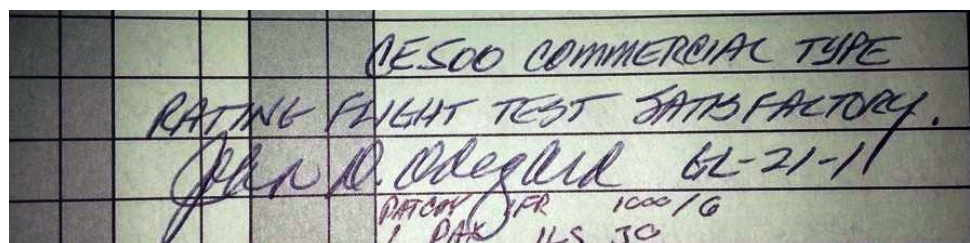 CE500 COMMERCIAL TYPE
RATING FLIGHT TEST SATISFACTORY.
John D. Odegard GL-21-11
PATCHY IFR 1000/6
1 PAX ILS 30